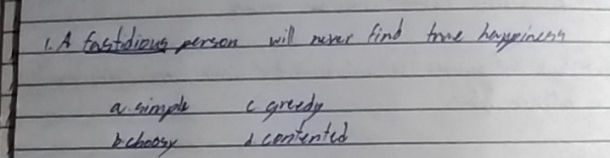 1. A fastidious person will never find true happiness
a. simple c. greedy
b. choosy d. contented